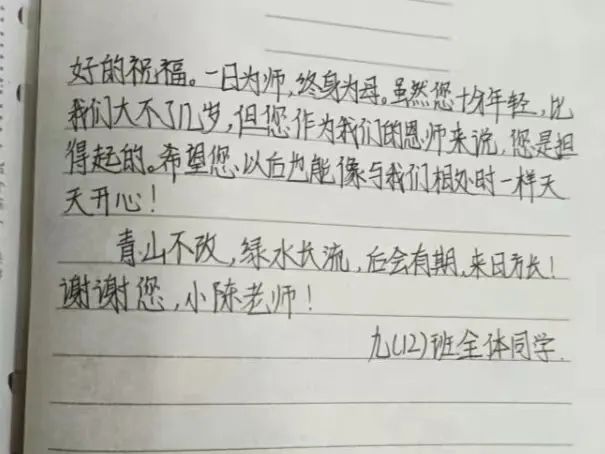 好的祝福。一日为师，终身为母。虽然您十分年轻，比
我们大不了几岁，但您作为我们的恩师来说，您是担
得起的。希望您以后也能像与我们相处时一样天
天开心！
青山不改，绿水长流，后会有期，来日方长！
谢谢您，小陈老师！
九(12)班全体同学.